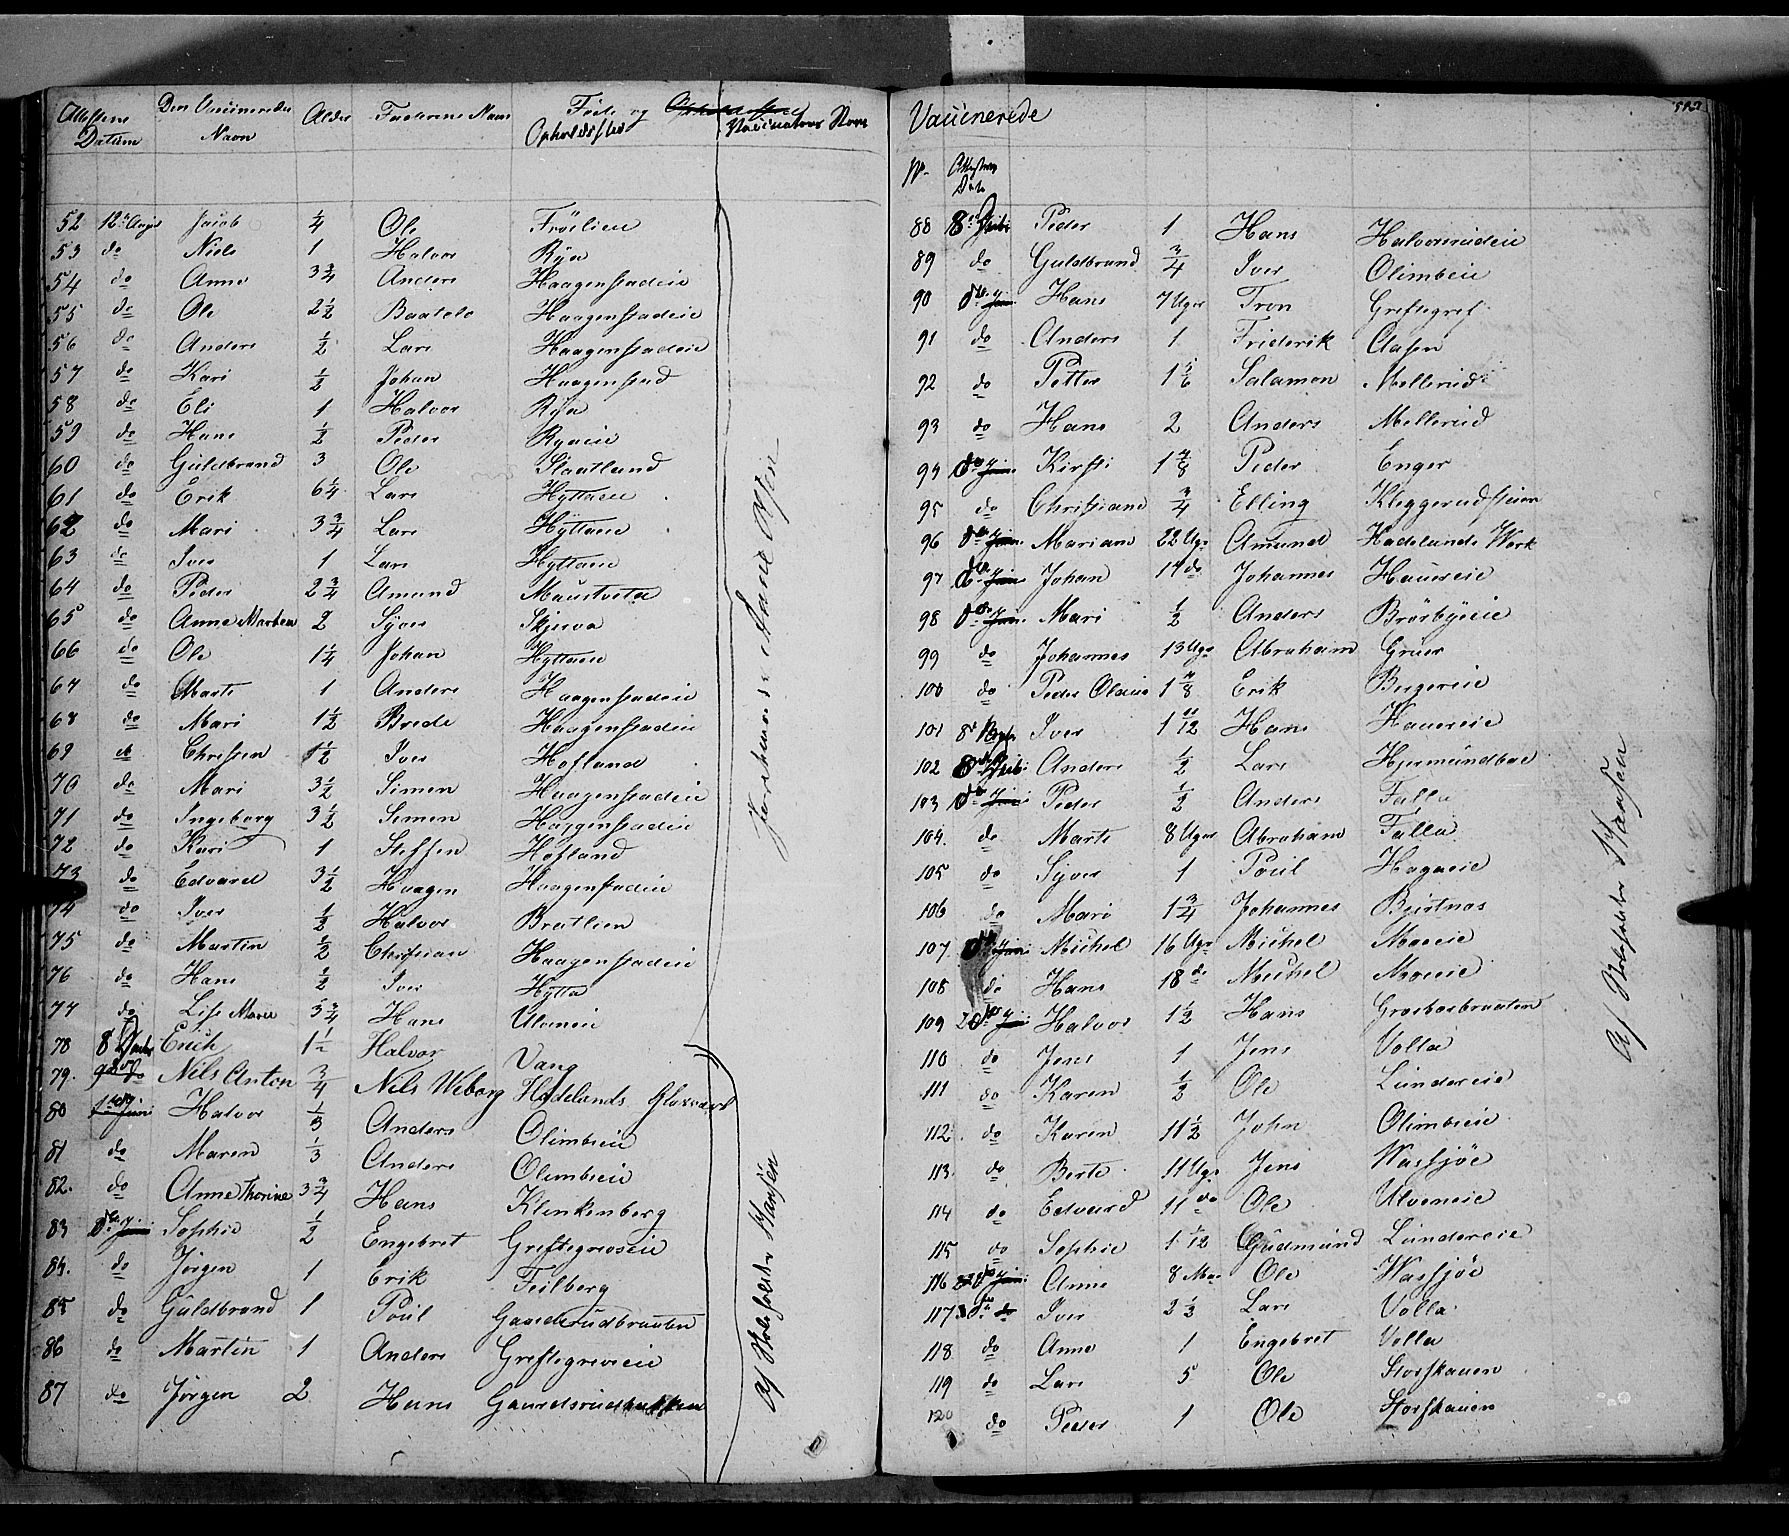 Attestens Datum Den Vaccineredes Navn Alder Faderens Navn Føde og Opholdssted Vaccinateurs Navn
52 12 Augs Jacob 1/4 Ole Frölien
53 do Niels 1 Halvor Rÿa
54 do Anne 3 3/4 Anders Haagenstadeie
55 do Ole 2 1/2 Baatele Haagenstadeie
56 do Anders 1/2 Lars Haagenstadeie
57 do Kari 1/2 Johan Haagenstad
58 do Eli 1 Halvor Rÿa
59 do Hans 1/2 Peder Ryaeie
60 do Guldbrand 3 Ole Slaatland
61 do Erik 6 1/4 Lars Hyttaeie
62 do Mari 3 3/4 Lars Hÿttaeie
63 do Iver 1 Lars Hyttaeie
64 do Peder 2 3/4 Amund Maustveta
65 do Anne Marthea 2 Syver Skjerva
66 do Ole 1 1/4 Johan Hyttaeie
67 do Marte 1 Anders Haagenstadeie
68 do Mari 1 1/2 Brede Haagenstadeie
69 do Christen 1 1/2 Iver Hofland
70 do Mari 3 1/2 Simen Haagenstadeie
71 do Ingeborg 3 1/2 Simen Haagenstadeie
72 do Kari 1 Steffen Hofland
73 do Edvard 3 1/2 Haagen Haagenstadeie
74 do Iver 1/2 Halvor Bratlien
75 do Martin 1/2 Christian Haagenstadeie
76 do Hans 1/2 Iver Hytta
77 do Lise Marie 3 3/4 Hans Ulveneie
Jordemoder Marie Olsen
78 8 Erich 1 1/2 Halvor Vang
79. do Nils Anton 3/4 Nils Weborg Hadelands Glasværk
80 Juni Halvor 1/3 Anders Olimbeie
81 do Maren 1/3 Anders Olimbeie
82. do Anne Thorine 3 3/4 Hans Klinkenberg
83 Sophie 1/2 Engebret Greftegrevseie
84. do Jørgen 1 Erik Feilberg
85 do Guldbrand 1 Poul Gaardsrudbraaten
86 do Martin 1 Anders Greftegreveie
87 do Jørgen 2 Hans
Af Holsfelder Hansen
Vaccinerede
No. Attestens Dato
88 8 Peder 1 Hans Halvorsrudeie
89 do Guldbrand 3/4 Iver Olimbeie
90 Hans 7 Uger Tron Greftegref
91 do Anders 1 Friderik Aasen
92 do Petter 1 1/6 Salamon Mellerud
93 do Hans 2 Anders Mellerud
94 Kirsti 1 7/8 Peder Enger
95 do Christiane 3/4 Elling Kleggerudstuen
96 Mariane 22 Ugr Amund Hadelands Værk
97 Johan 14 do Johannes Hauereie
98 Mari 1/2 Anders Brörbyeie
99 do Johannes 13 Ugr Abraham Gruer
100 do Peder Olaus 1 7/8 Erik Bergereie
101 8 Iver 1 11/12 Hans Hauereie
102 8 Anders 1/2 Lars Hjermundbøe
103 Peder 1/2 Anders Falla
104. do Marte 8 Uger Abraham Falla
105 do Syver 1 Poul Hagaeie
106 do Mari 1 3/4 Johannes Bjertnæs
107 Michel 16 Ugr Michel Moeeie
108 do Hans 18 do Michel Moeeie
109 20 Halvor 1 1/2 Hans Grosbosbraaten
110 do Jens 1 Jens Volla
111 do Karen 1/2 Ole Lundereie
112. do Karen 11 1/2 John Olimbeie
113. do Berte 11 Ugr Jens Wassjøe
114 do Edvard 11 do Ole Ulveneie
115 do Sophie 1 1/12 Gudmund Lundereie
116 Anne 8 Ma. Ole Wassjøe
117 do Iver 2 1/3 Lars Volla
118 do Anne 1 Engebret Volla
119 do Lars 5 Ole Storskauen
120 do Peder 1 Ole Storskauen
Af Holsfelder Hansen